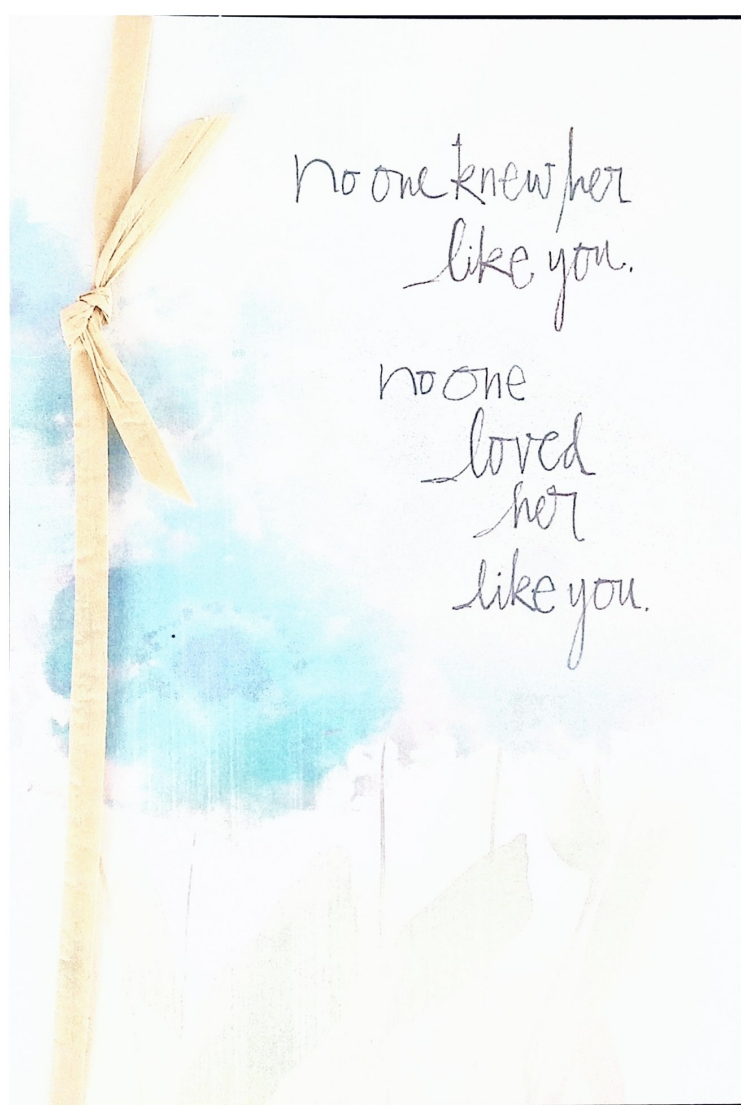 no one knew her
like you.
no one
loved
her
like you.